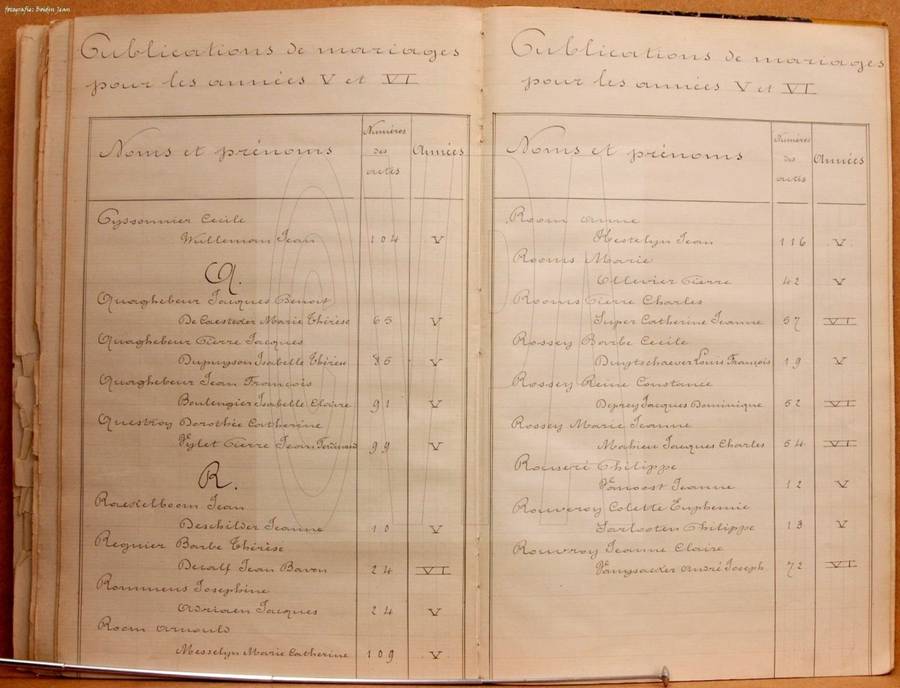 fotografie: Boidin Jean
Publications de mariages
pour les années V et VI
Noms et prénoms
Numéros
des
actes
Années
Cyssonnier Cecile
Wulleman Jean 104 V
Q.
Quaghebeur Jacques Benoit
De Caesteker Marie Thérèse 65 V
Quaghebeur Pierre Jacques
Dupuyson Isabelle Thérèse 85 V
Quaghebeur Jean François
Boulengier Isabelle Claire 91 V
Questroy Dorothée Catherine
Pylet Pierre Jean Ferdinand 99 V
R.
Raekelboom Jean
Deschilder Jeanne 10 V
Regnier Barbe Thérèse
Jean Bavon 24 VI
Rommens Josephine
Adriaen Jacques 24 V
Room Arnould
Messelyn Marie Catherine 109 V
Publications de mariages
pour les années V et VI
Noms et prénoms
Numéros
des
actes
Années
Room Anne
Hestelyn Jean 116 V
Rooms Marie
Ollevier Pierre 42 V
Rooms Pierre Charles
Super Catherine Jeanne 57 VI
Rossey Barbe Cecile
Duytschaever Louis François 19 V
Rossey Reine Constance
Deprey Jacques Dominique 52 VI
Rossey Marie Jeanne
Mahieu Jacques Charles 54 VI
Rouseré Philippe
Vanoost Jeanne 12 V
Rouveroy Colette Euphemie
Sarlooten Philippe 13 V
Rouvroy Jeanne Claire
André Joseph 72 VI